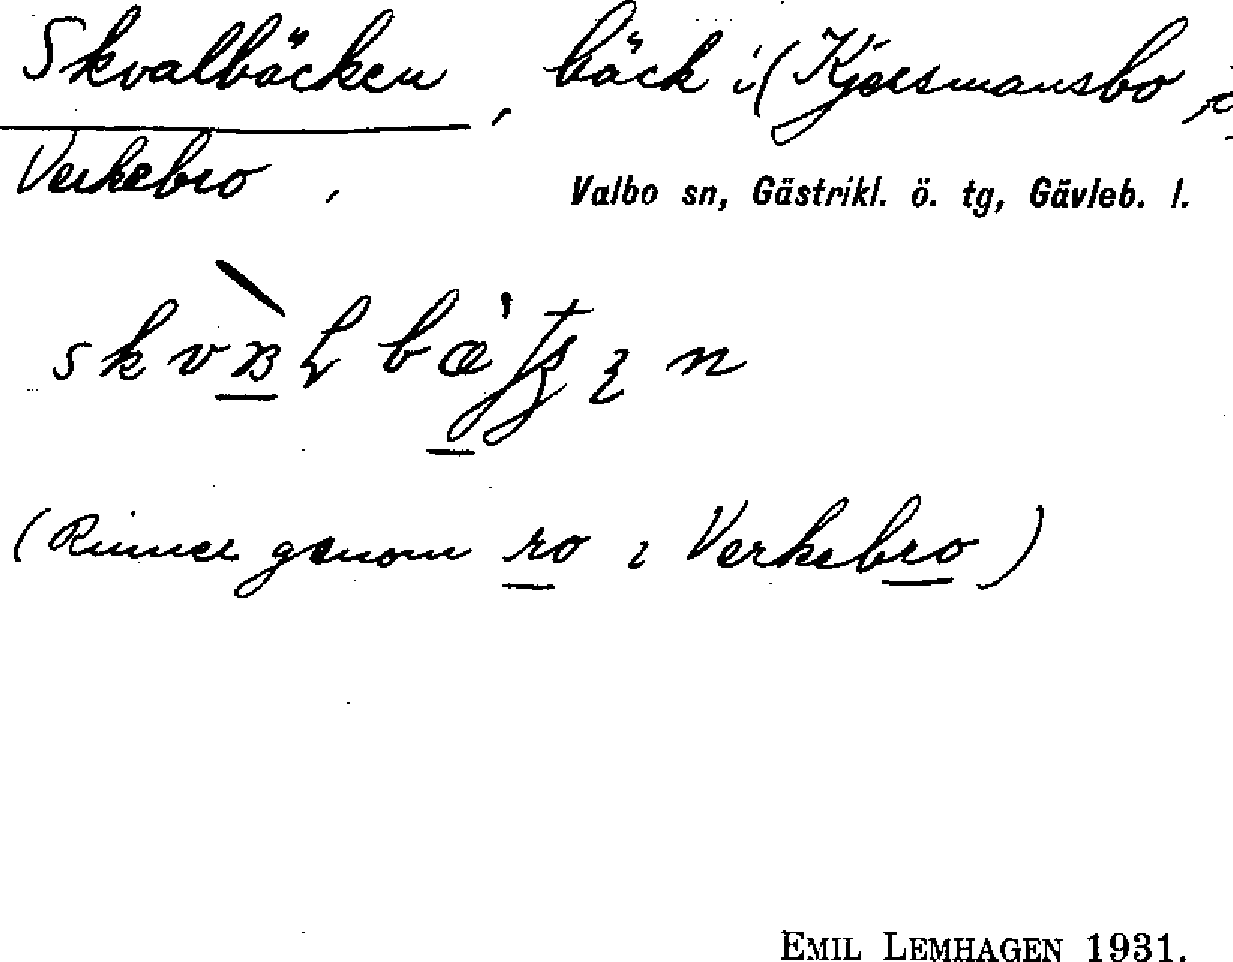 Skvalbäcken, bäck i (Kjersmansbo,
Verkebro,
Valbo sn, Gästrikl. ö. tg, Gävleb. l.
(Rinner genom ro i Verkebro)
EMIL LEMHAGEN 1931.